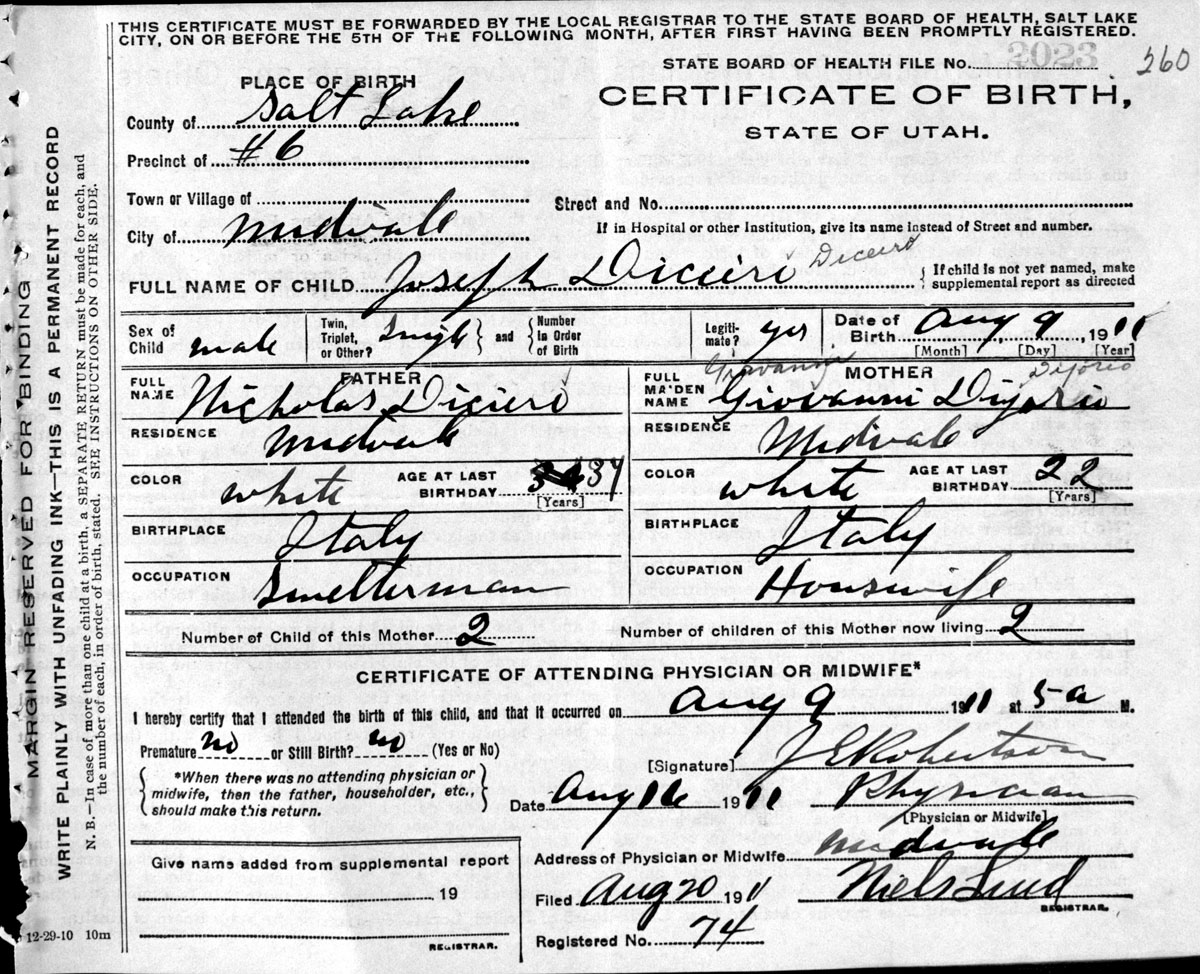 THIS CERTIFICATE MUST BE FORWARDED BY THE LOCAL REGISTRAR TO THE STATE BOARD OF HEALTH, SALT LAKE
CITY, ON OR BEFORE THE 5TH OF THE FOLLOWING MONTH, AFTER FIRST HAVING BEEN PROMPTLY REGISTERED.
STATE BOARD OF HEALTH FILE No. 2023
260
PLACE OF BIRTH
CERTIFICATE OF BIRTH,
STATE OF UTAH.
County of Salt Lake
Precinct of #6
Town or Village of
Street and No.
City of Midvale
If in Hospital or other Institution, give its name instead of Street and number.
FULL NAME OF CHILD Joseph Dicieri Diceiro
{ If child is not yet named, make
supplemental report as directed
Sex of Child male
Twin, Triplet, or Other? Single } and { Number In Order of Birth
Legitimate? yes
Date of Birth Aug 9, 1911
[Month] [Day] [Year]
FATHER
FULL NAME Nicholas Dicieri
RESIDENCE Midvale
COLOR white AGE AT LAST BIRTHDAY 34
[Years]
BIRTHPLACE Italy
OCCUPATION Smelterman
MOTHER
Diforio
FULL MAIDEN NAME Giovanni Dijorio
RESIDENCE Midvale
COLOR white AGE AT LAST BIRTHDAY 22
[Years]
BIRTHPLACE Italy
OCCUPATION Houswife
Number of Child of this Mother 2
Number of children of this Mother now living 2
CERTIFICATE OF ATTENDING PHYSICIAN OR MIDWIFE*
I hereby certify that I attended the birth of this child, and that it occurred on Aug 9 1911 at 5 a M.
Premature no or Still Birth? no (Yes or No)
{ *When there was no attending physician or
midwife, then the father, householder, etc.,
should make this return. }
[Signature] J E Robertson
Date Aug 16 1911 Physician
[Physician or Midwife]
Address of Physician or Midwife Midvale
Filed Aug 20 1911 Niels Lind
REGISTRAR.
Registered No. 74
Give name added from supplemental report
, 19
REGISTRAR.
12-29-10 10m
MARGIN RESERVED FOR BINDING
WRITE PLAINLY WITH UNFADING INK—THIS IS A PERMANENT RECORD
N. B.—In case of more than one child at a birth, a SEPARATE RETURN must be made for each, and
the number of each, in order of birth, stated. SEE INSTRUCTIONS ON OTHER SIDE.